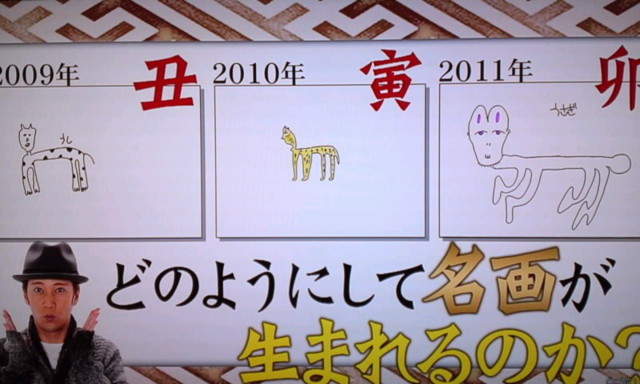 2009年 丑 2010年 寅 2011年 卯
うし
うさぎ
どのようにして名画が
生まれるのか?